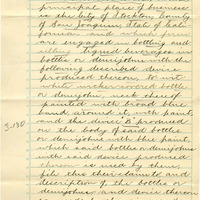 principal place of business
is the City of Stockton, County
of San Joaquin, State of Cali-
fornia and which firm
are engaged in bottling and
selling liquid beverages in
bottles or demijohns with the
following described device
produced thereon, to wit:
white wicker covered bottle
or demijohn, neck thereof
painted with broad blue
band around it with paint,
and the device B produced
on the body of said bottles
or demijohns with blue paint,
which said bottles or demijohns
with said device produced
thereon is used by them,
file this their claim to, and
description of the bottles or
demijohns and device thereon